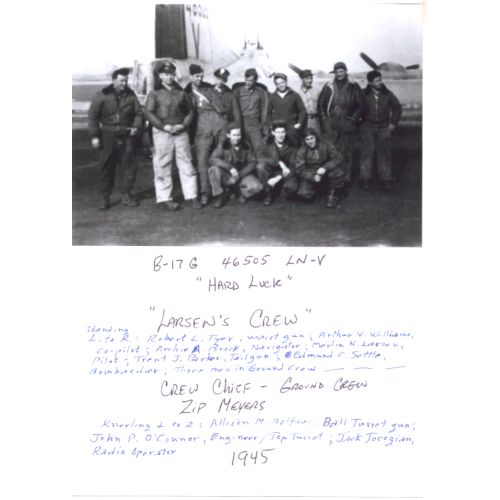 B-17G 46505 LN-V
"HARD LUCK"
"LARSEN'S CREW"
Standing
L. to R: Robert L. Tyer, waist gun; Arthur V. Williams,
co-pilot; Archie Brock, Navigator; Merlin K. Larsen,
Pilot; Trent J. Barker, Tailgun; Edmund C. Settle,
Bombardier; Three men in Ground Crew
CREW CHIEF - GROUND CREW
ZIP MEYERS
Kneeling L to R: Allison M. Ball Turret gun;
John P. O'Connor, Engineer/Top Turret; Jack
Radio Operator
1945